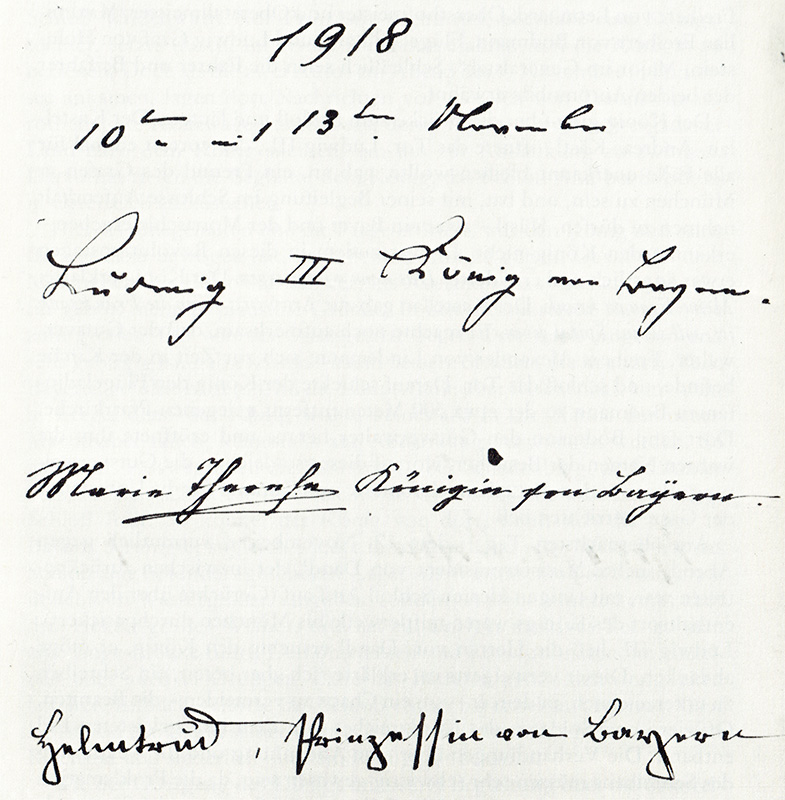 1918
10ten – 13ten November
Ludwig III König von Bayern.
Marie Therese Königin von Bayern.
Helmtrud, Prinzessin von Bayern